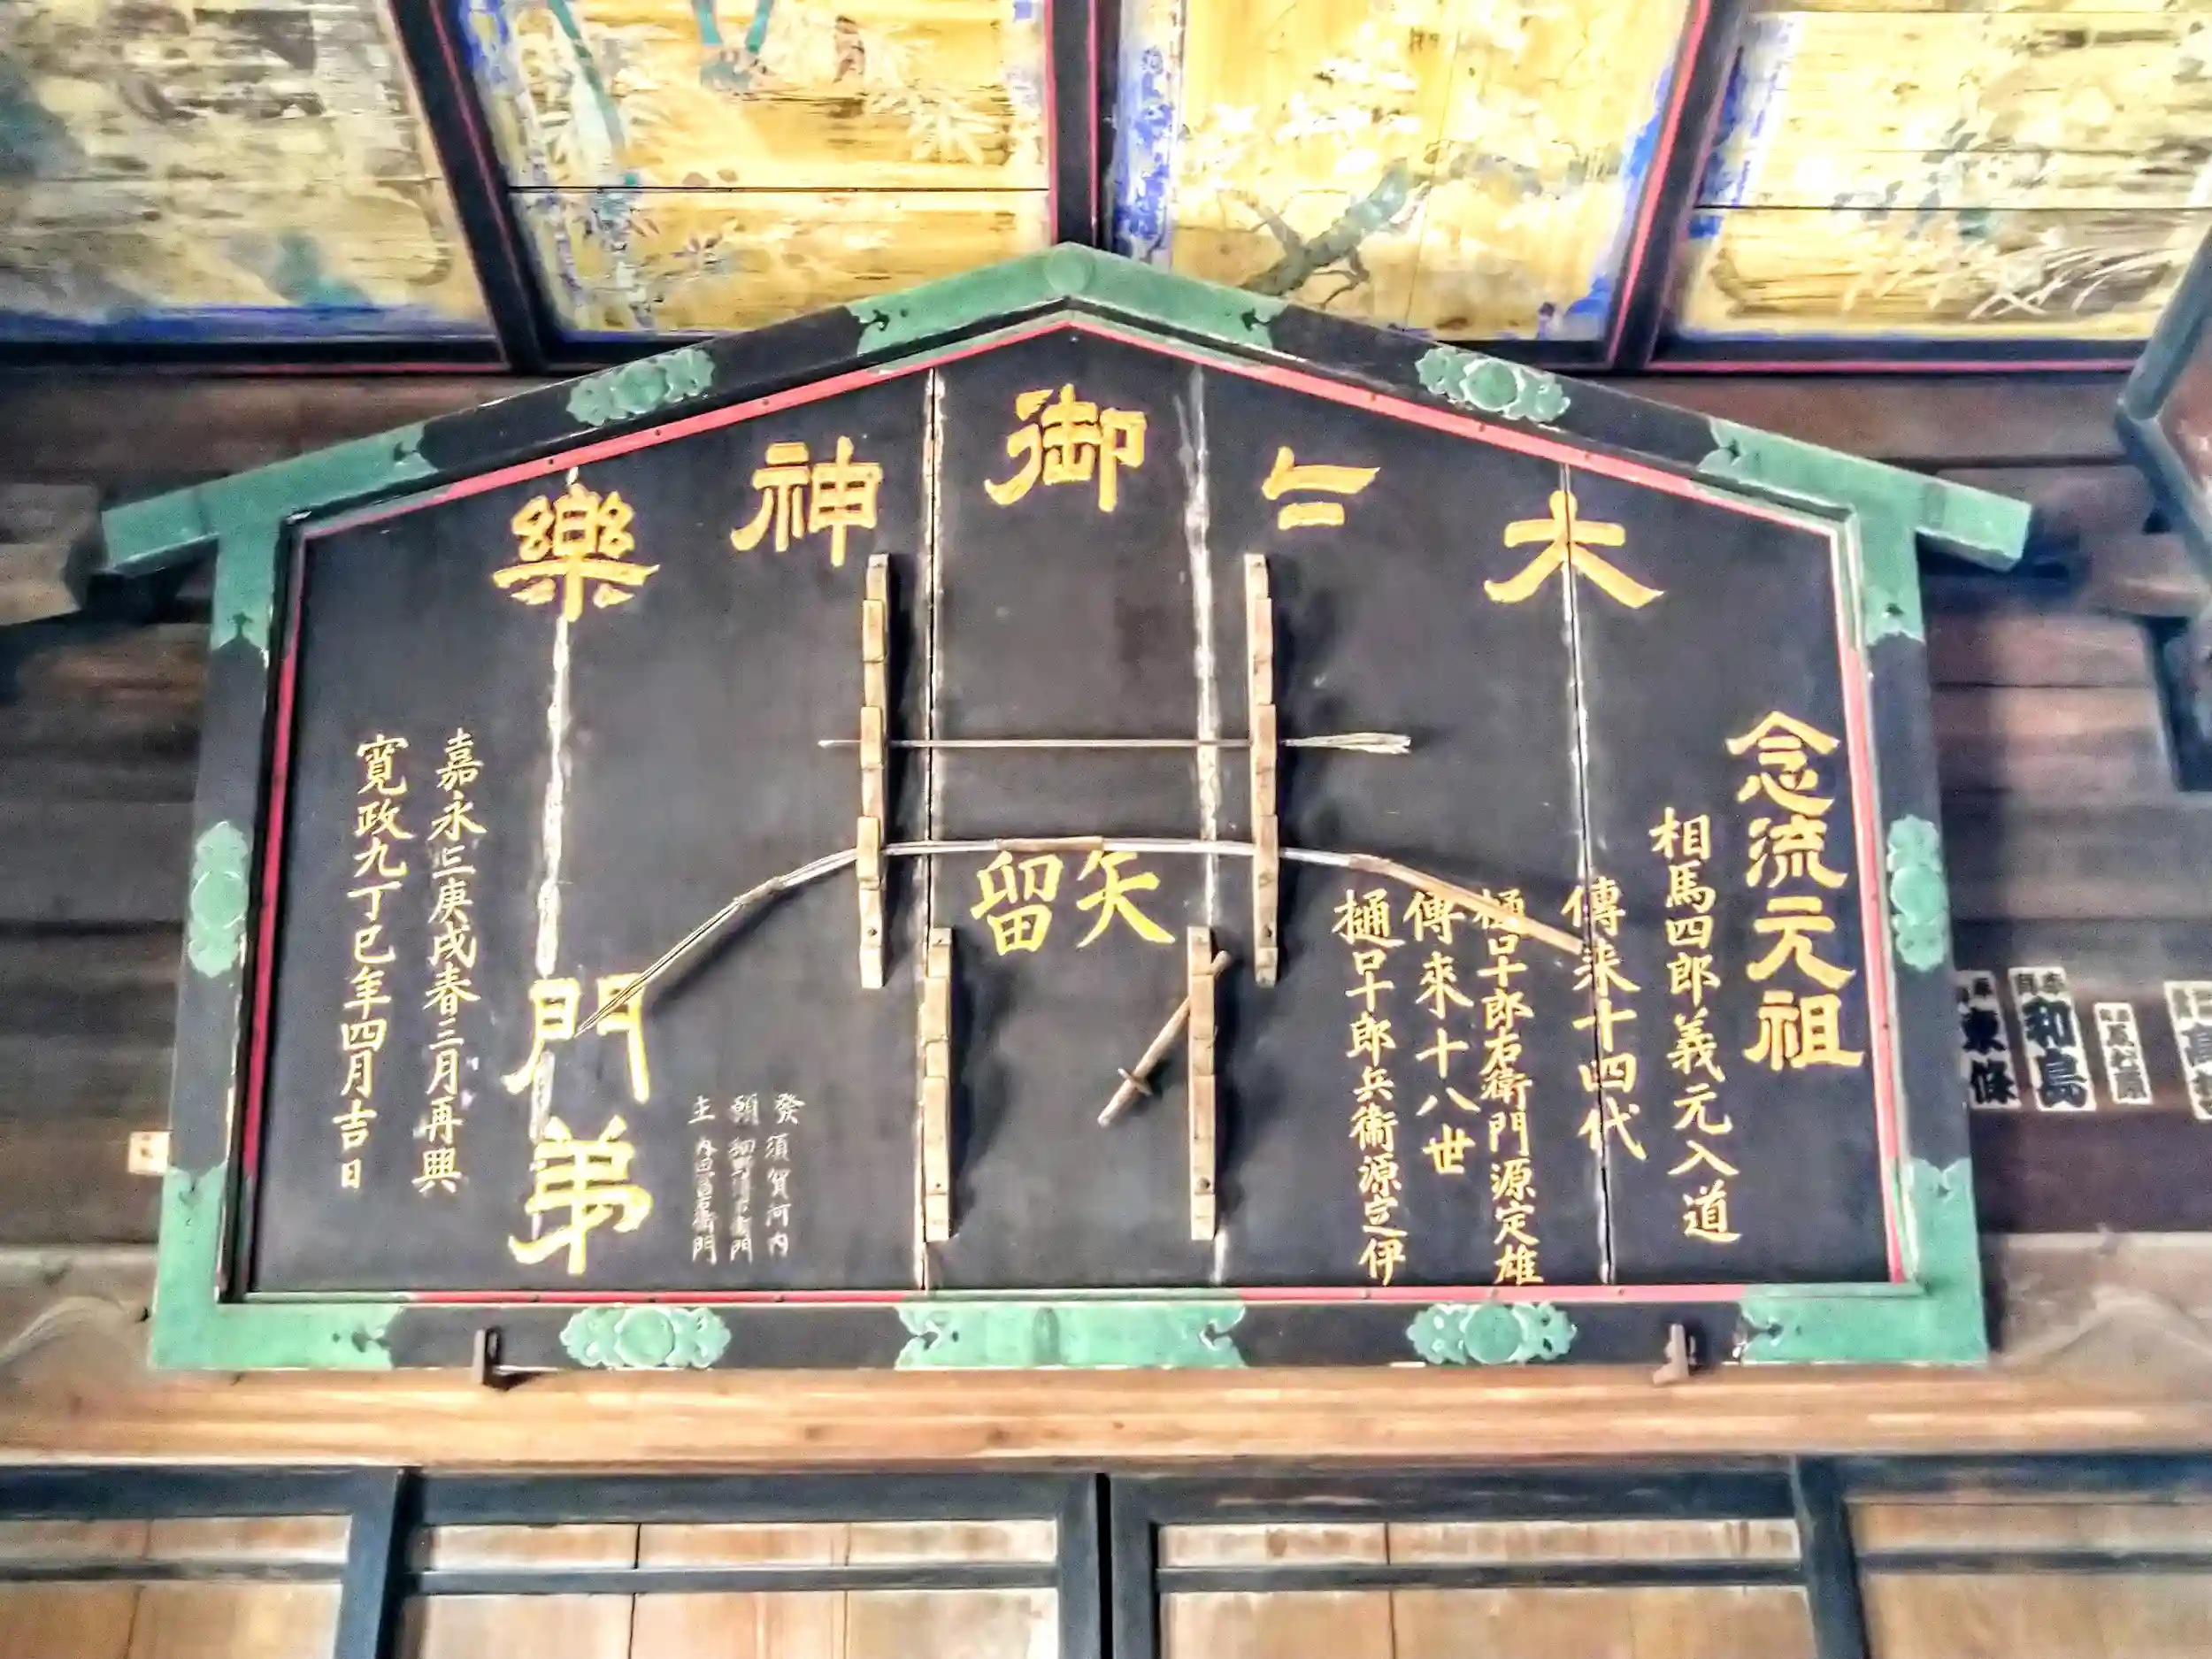 大々御神樂
念流元祖
相馬四郎義元入道
傳来十四代
樋口十郎右衛門源定雄
傳來十八世
樋口十郎兵衛源定伊
矢留
發願主
須賀河内
門弟
嘉永三庚戌春三月再興
寛政九丁巳年四月吉日
和島
東條